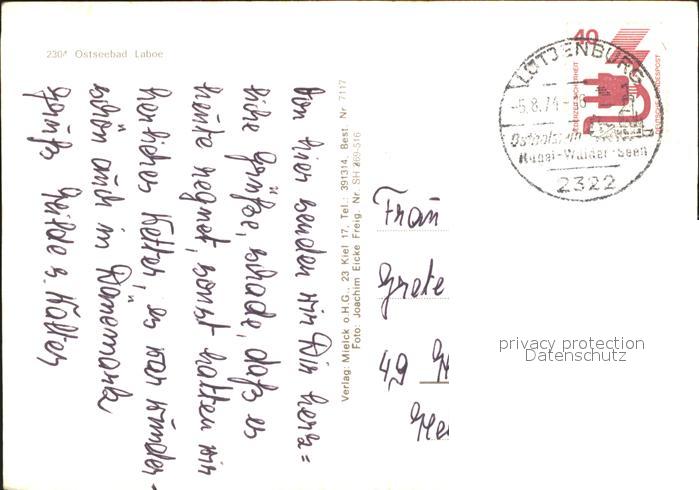 2304 Ostseebad Laboe
Von hier senden wir Dir herz=
liche Grüße, schade, daß es
heute regnet, sonst hatten wir
herrliches Wetter, es war wunder-
schön auch in Dänemark
Grüß
Verlag: Mielck o.H.G., 23 Kiel 17, Tel.: 391314. Best. Nr 7117
Foto: Joachim Eicke Freig. Nr. SH 269-516
Frau
Grete
49 H
40
JEDERZEIT SICHERHEIT
DEUTSCHE BUNDESPOST
LÜTJENBURG
-5.8.74-
Ostholstein
Hügel-Wälder-Seen
2322
privacy protection
Datenschutz